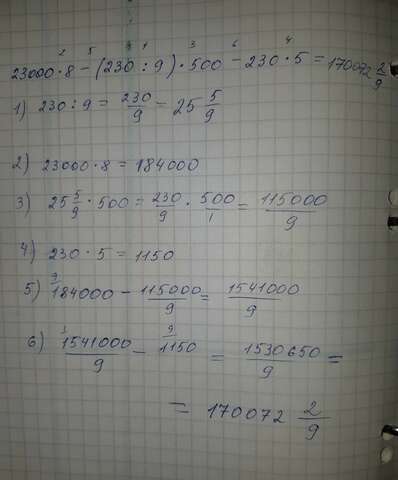 2 5 1 3 6 4
23000 · 8 - (230 : 9) · 500 - 230 · 5 = 170072 2/9
1) 230 : 9 = 230/9 = 25 5/9
2) 23000 · 8 = 184000
3) 25 5/9 · 500 = 230/9 · 500/1 = 115000/9
4) 230 · 5 = 1150
5) 9 184000 - 115000/9 = 1541000/9
6) 1 1541000/9 - 9 1150 = 1530650/9 =
= 170072 2/9